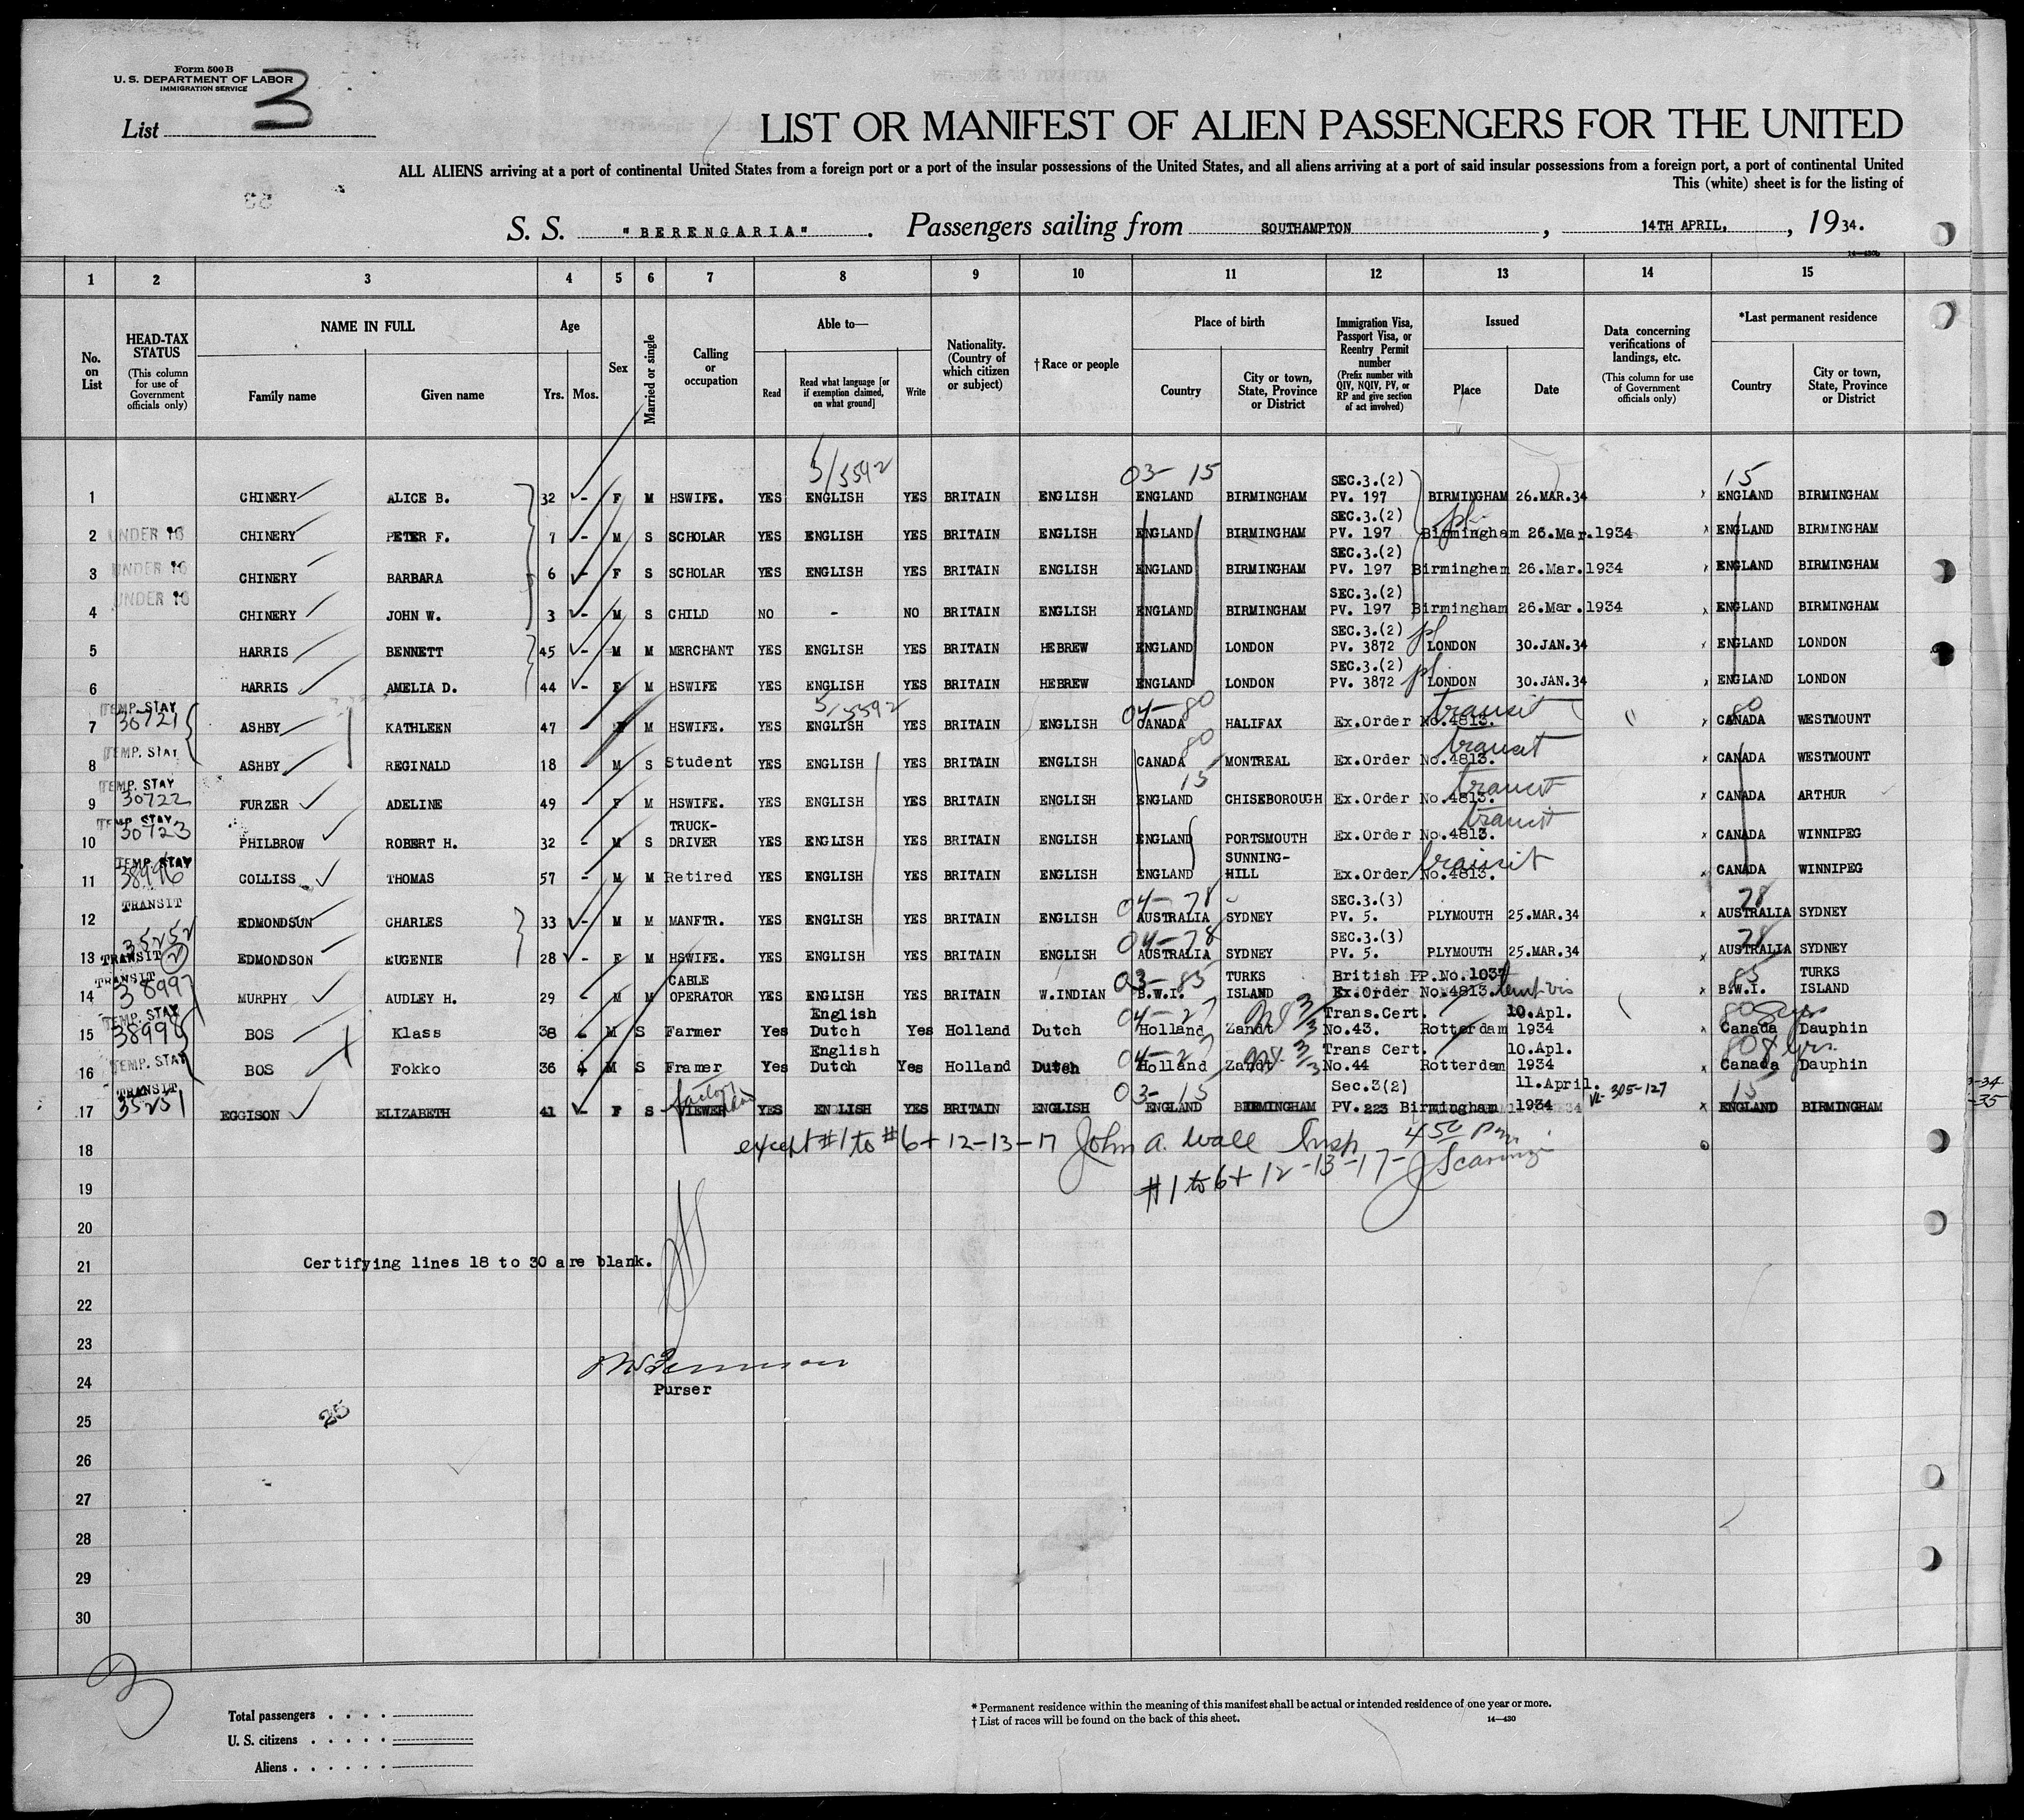 Form 500 B
U. S. DEPARTMENT OF LABOR
IMMIGRATION SERVICE
List 3
LIST OR MANIFEST OF ALIEN PASSENGERS FOR THE UNITED
ALL ALIENS arriving at a port of continental United States from a foreign port or a port of the insular possessions of the United States, and all aliens arriving at a port of said insular possessions from a foreign port, a port of continental United
This (white) sheet is for the listing of
S. S. "BERENGARIA". Passengers sailing from SOUTHAMPTON, 14TH APRIL, 1934.
14—430b
1 2 3 4 5 6 7 8 9 10 11 12 13 14 15
No. on List
HEAD-TAX STATUS (This column for use of Government officials only)
NAME IN FULL Family name Given name
Age Yrs. Mos.
Sex
Married or single
Calling or occupation
Able to— Read Read what language [or if exemption claimed, on what ground] Write
Nationality. (Country of which citizen or subject)
† Race or people
Place of birth Country City or town, State, Province or District
Immigration Visa, Passport Visa, or Reentry Permit number (Prefix number with QIV, NQIV, PV, or RP and give section of act involved)
Issued Place Date
Data concerning verifications of landings, etc. (This column for use of Government officials only)
*Last permanent residence Country City or town, State, Province or District
5/5592 03-15 15
1 CHINERY ALICE B. 32 - F M HSWIFE. YES ENGLISH YES BRITAIN ENGLISH ENGLAND BIRMINGHAM SEC.3.(2) PV. 197 BIRMINGHAM 26.MAR.34 ENGLAND BIRMINGHAM
2 UNDER 16 CHINERY PETER F. 7 - M S SCHOLAR YES ENGLISH YES BRITAIN ENGLISH ENGLAND BIRMINGHAM SEC.3.(2) PV. 197 Birmingham 26.Mar.1934 ENGLAND BIRMINGHAM
3 UNDER 16 CHINERY BARBARA 6 - F S SCHOLAR YES ENGLISH YES BRITAIN ENGLISH ENGLAND BIRMINGHAM SEC.3.(2) PV. 197 Birmingham 26.Mar.1934 ENGLAND BIRMINGHAM
4 UNDER 16 CHINERY JOHN W. 3 - M S CHILD NO - NO BRITAIN ENGLISH ENGLAND BIRMINGHAM SEC.3.(2) PV. 197 Birmingham 26.Mar.1934 ENGLAND BIRMINGHAM
5 HARRIS BENNETT 45 - M M MERCHANT YES ENGLISH YES BRITAIN HEBREW ENGLAND LONDON SEC.3.(2) PV. 3872 LONDON 30.JAN.34 ENGLAND LONDON
6 HARRIS AMELIA D. 44 - F M HSWIFE YES ENGLISH YES BRITAIN HEBREW ENGLAND LONDON SEC.3.(2) PV. 3872 LONDON 30.JAN.34 ENGLAND LONDON
5/5592 04-80 transit 80
7 TEMP. STAY 30721 ASHBY KATHLEEN 47 - M HSWIFE. YES ENGLISH YES BRITAIN ENGLISH CANADA HALIFAX Ex.Order No.4813. CANADA WESTMOUNT
80 transit
8 TEMP. STAY ASHBY REGINALD 18 - M S Student YES ENGLISH YES BRITAIN ENGLISH CANADA MONTREAL Ex.Order No.4813. CANADA WESTMOUNT
15 transit
9 TEMP. STAY 30722 FURZER ADELINE 49 - F M HSWIFE. YES ENGLISH YES BRITAIN ENGLISH ENGLAND CHISEBOROUGH Ex.Order No.4813. CANADA ARTHUR
transit
10 TEMP. STAY 30723 PHILBROW ROBERT H. 32 - M S TRUCK-DRIVER YES ENGLISH YES BRITAIN ENGLISH ENGLAND PORTSMOUTH Ex.Order No.4813. CANADA WINNIPEG
transit
11 TEMP. STAY 38996 COLLISS THOMAS 57 - M M Retired YES ENGLISH YES BRITAIN ENGLISH ENGLAND SUNNING-HILL Ex.Order No.4813. CANADA WINNIPEG
04-78 78
12 TRANSIT EDMONDSUN CHARLES 33 - M M MANFTR. YES ENGLISH YES BRITAIN ENGLISH AUSTRALIA SYDNEY SEC.3.(3) PV. 5. PLYMOUTH 25.MAR.34 AUSTRALIA SYDNEY
35252 04-78 78
13 TRANSIT 2 EDMONDSON EUGENIE 28 - F M HSWIFE. YES ENGLISH YES BRITAIN ENGLISH AUSTRALIA SYDNEY SEC.3.(3) PV. 5. PLYMOUTH 25.MAR.34 AUSTRALIA SYDNEY
03-85 85
14 TRANSIT 38997 MURPHY AUDLEY H. 29 - M M CABLE OPERATOR YES ENGLISH YES BRITAIN W.INDIAN B.W.I. TURKS ISLAND British PP.No.1037 Ex.Order No.4813. B.W.I. TURKS ISLAND
04-27
15 TEMP. STAY 38998 BOS Klass 38 - M S Farmer Yes English Dutch Yes Holland Dutch Holland Zandt Trans.Cert. No.43. Rotterdam 10.Apl. 1934 Canada Dauphin
04-27 80 8 yrs.
16 TEMP. STAY BOS Fokko 36 M S Framer Yes English Dutch Yes Holland Dutch Holland Zandt Trans Cert. No.44 Rotterdam 10.Apl. 1934 Canada Dauphin
03-15 15
17 TRANSIT 35251 EGGISON ELIZABETH 41 - F S factory VIEWER YES ENGLISH YES BRITAIN ENGLISH ENGLAND BIRMINGHAM Sec.3(2) PV.223 Birmingham 11.April. 1934 VL-305-127 ENGLAND BIRMINGHAM
except #1 to #6 + 12-13-17 John A. Wall Insp 4 50 pm
18
#1 to 6 + 12-13-17-
19
20
21 Certifying lines 18 to 30 are blank.
22
23
24 Purser
25
25
26
27
28
29
30
3
Total passengers
U. S. citizens
Aliens
* Permanent residence within the meaning of this manifest shall be actual or intended residence of one year or more.
† List of races will be found on the back of this sheet. 14—430